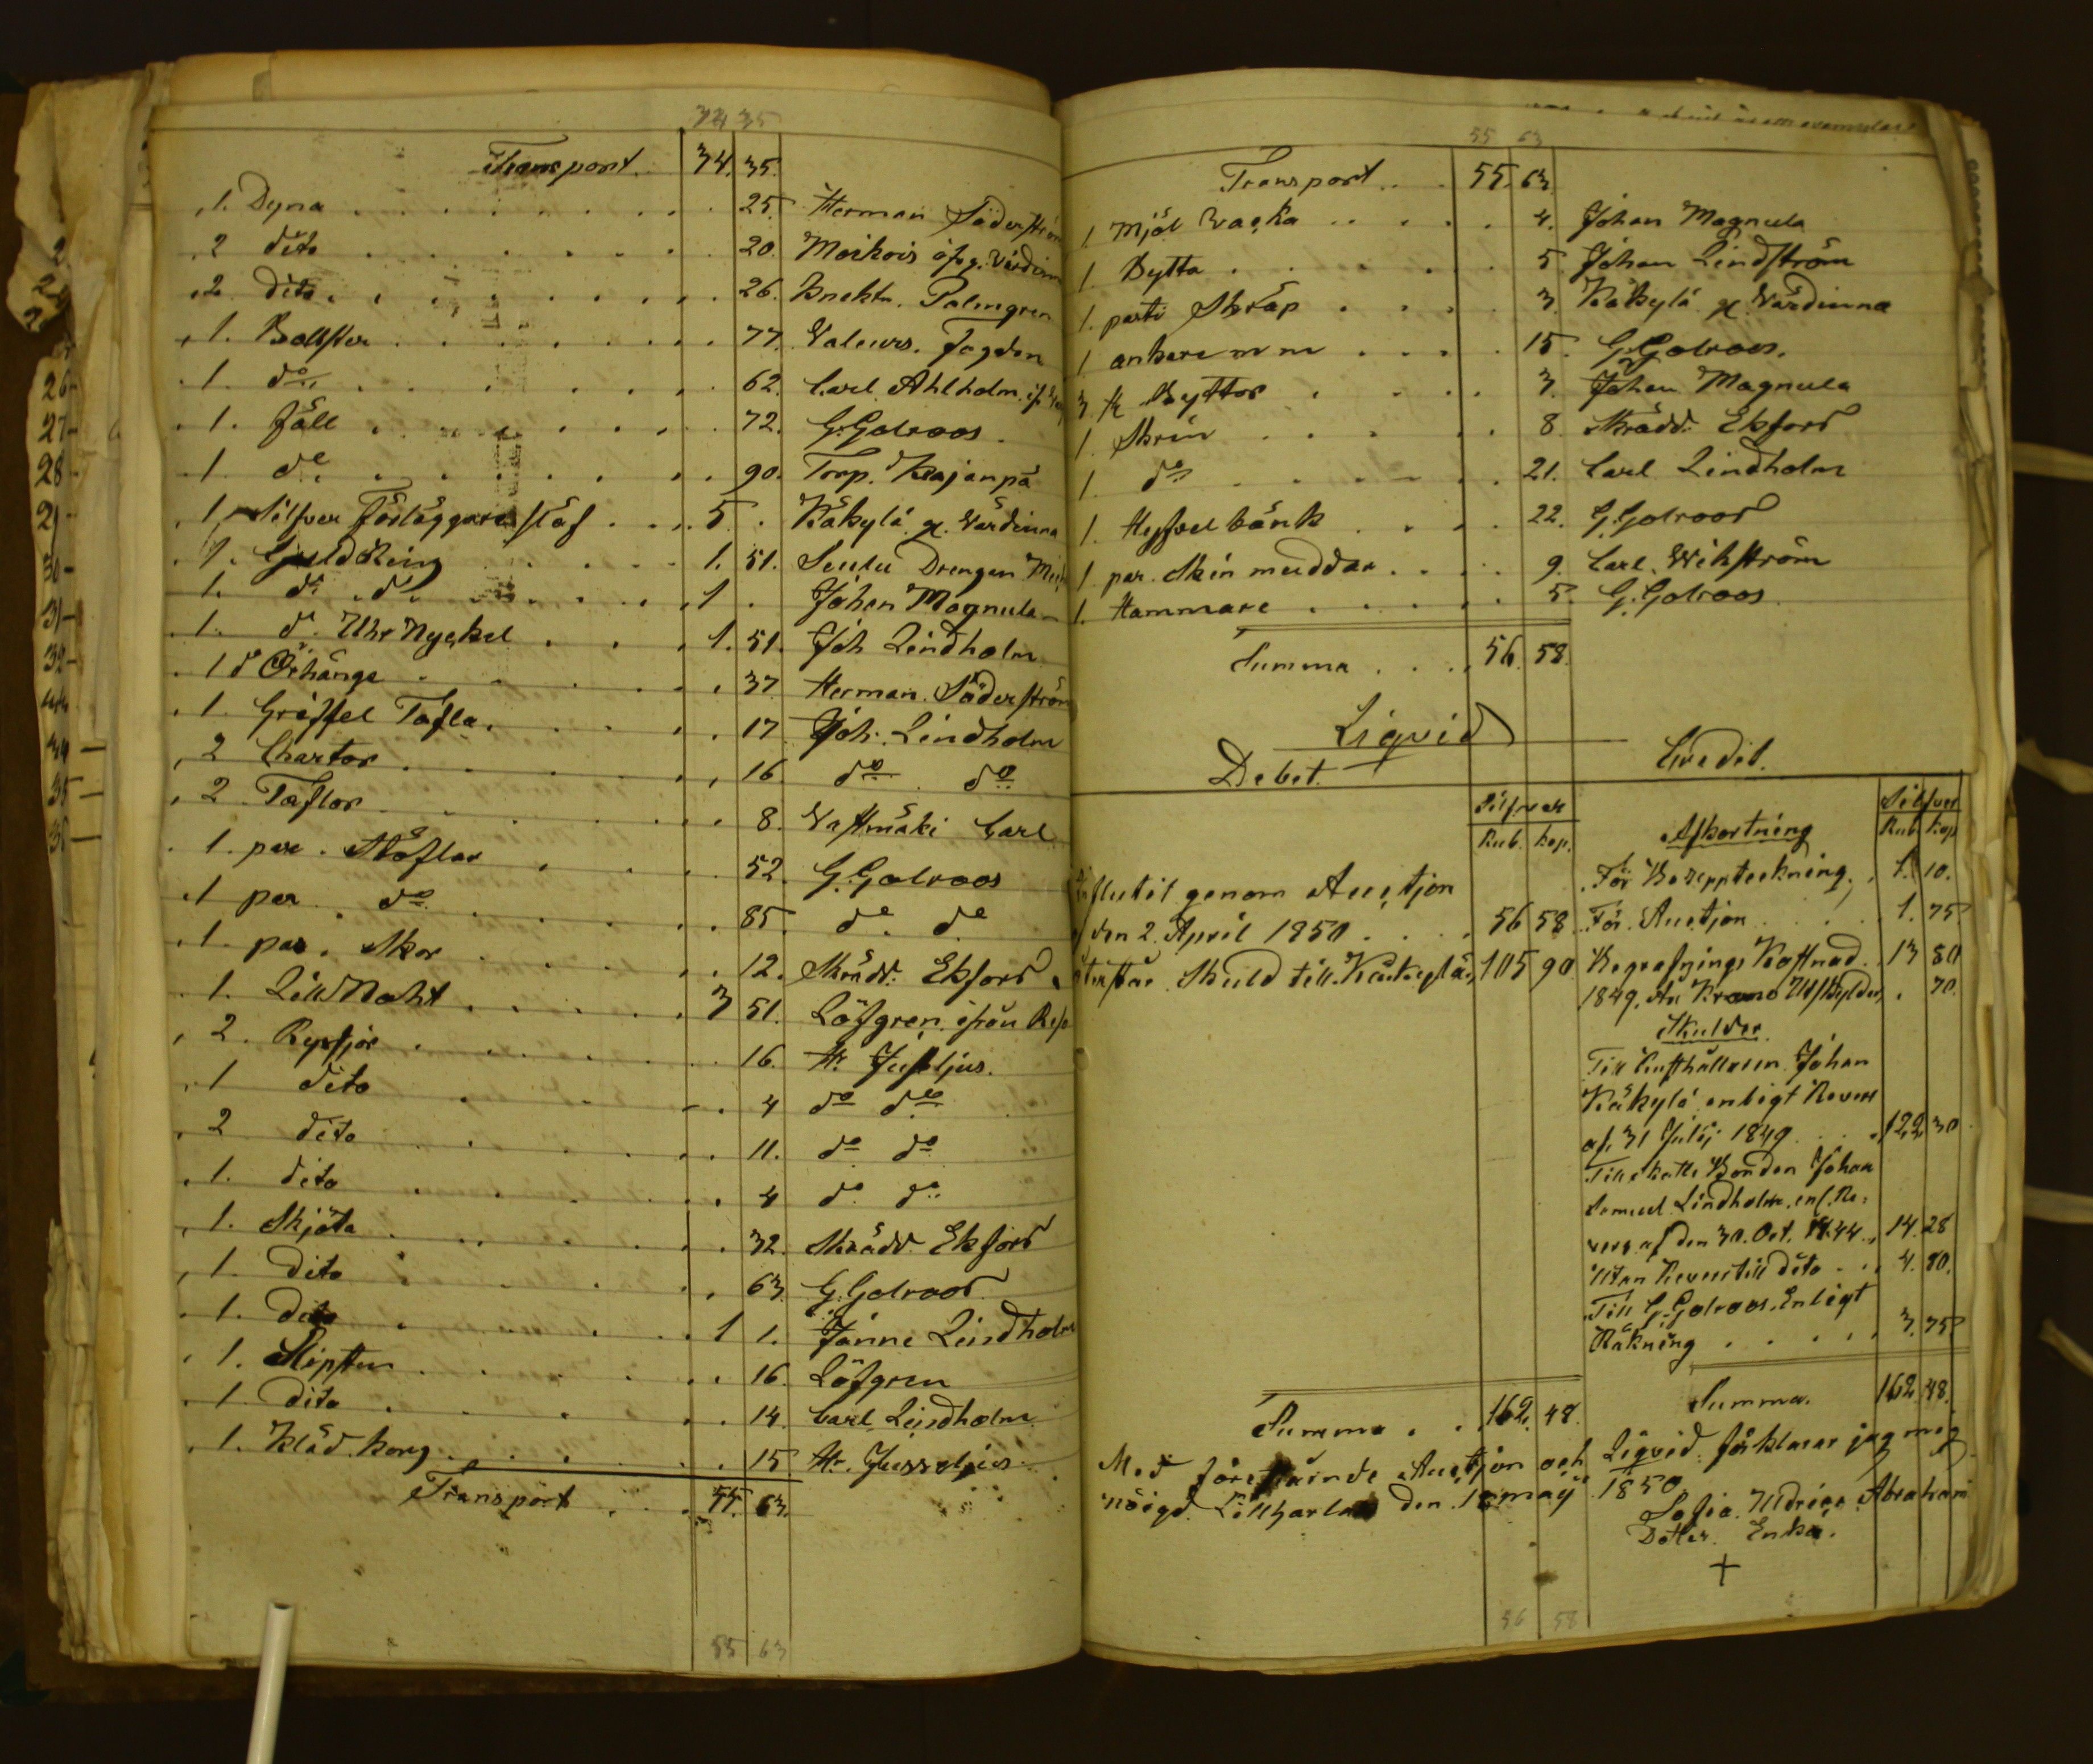 34 35
Transport. 34. 35.
1. Dyna 25. Herman Söderström
2 dito 20. Moikois
2 dito 26. Knekts. Palmgren
1. Bolster 77. Fogden
1. do 62. Carl Ahlholm
1. fäll 72. G. Golroos.
1. do 90. Torp. Kajanpä
1. Silfver Förläggare släf 5. Käkylä g. Värdinna
1. Guld Ring 1. 51. Drengen
1. do. do. 1. Johan Magnula
1. do. Uhr Nyckel 1. 51. Joh Lindholm
1 do Örhänge 37 Herman Söderström
1 Griffel Tafla. 17 Joh. Lindholm
2 Chartor 16 do do
2 Taflor 8. Carl
1. par. Stöflor 52. G. Golroos
1 par do 85. do do
1. par. Skor 12. Skrädd. Ekfors
1. 3 51. Löfgren ifrån
2. Ryssjor 16. Hr Juseljus.
1 dito 4 do do
2 dito 11. do do
1. dito 4 do do
1. Skjöta 32. Skrädd. Ekfors
1. Dito 63. G. Golroos
1. Dito 1 1. Janne Lindholm
1. 16. Löfgren
1 Dito 14. Carl Lindholm.
1. Kläd. korg 15 Hr. Jusseljus
Transport 55. 63.
55 63
55 63
Transport 55. 63.
1 Mjöl Vacka 4. Johan Magnula
1. Bytta 5. Johan Lindström
1. parti Skräp 3. Käkylä g. Värdinna
1 ankare m m 15. G. Golroos.
3 st Byttor 3. Johan Magnula
1. Skrin 8. Skrädd. Ekfors
1. do 21. Carl Lindholm
1. Hyfvel bänk 22. G. Golroos
1 par. Skin muddar 9. Carl. Wikström
1. Hammare 5. G. Golroos
Summa 56. 58.
Liqvid
Debet. Credit.
Silfver Silfver
Rub. Kop. Afkortning Rub. Kop
För Boupptekning. 1. 10.
Influtit genom Auctjon
den 2. April 1850 56 58 För Auctjon 1. 75
Skuld till Käkylä, 105 90 Begrafnings Kostnad. 13 80
1849. Krono Utskylder, 70.
Skulder
Till Rusthållaren Johan
Käkylä enligt Revers
af 31 Julij 1849 122 30
Till skatte Bonden Johan
Samuel Lindholm, enl. Re-
vers af den 30. Oct. 1844. 14. 28
Utan Revers till dito 4. 80.
Till G. Golroos. Enligt
Räkning 3. 75.
Summa 162. 48. Summa. 162. 48.
Med förestående Auctjon och Liqvid förklarar jag mig
nöigd. Lillharla den maij 1850
Sofia Abrahams
Dotter. Enka.
+
56 58